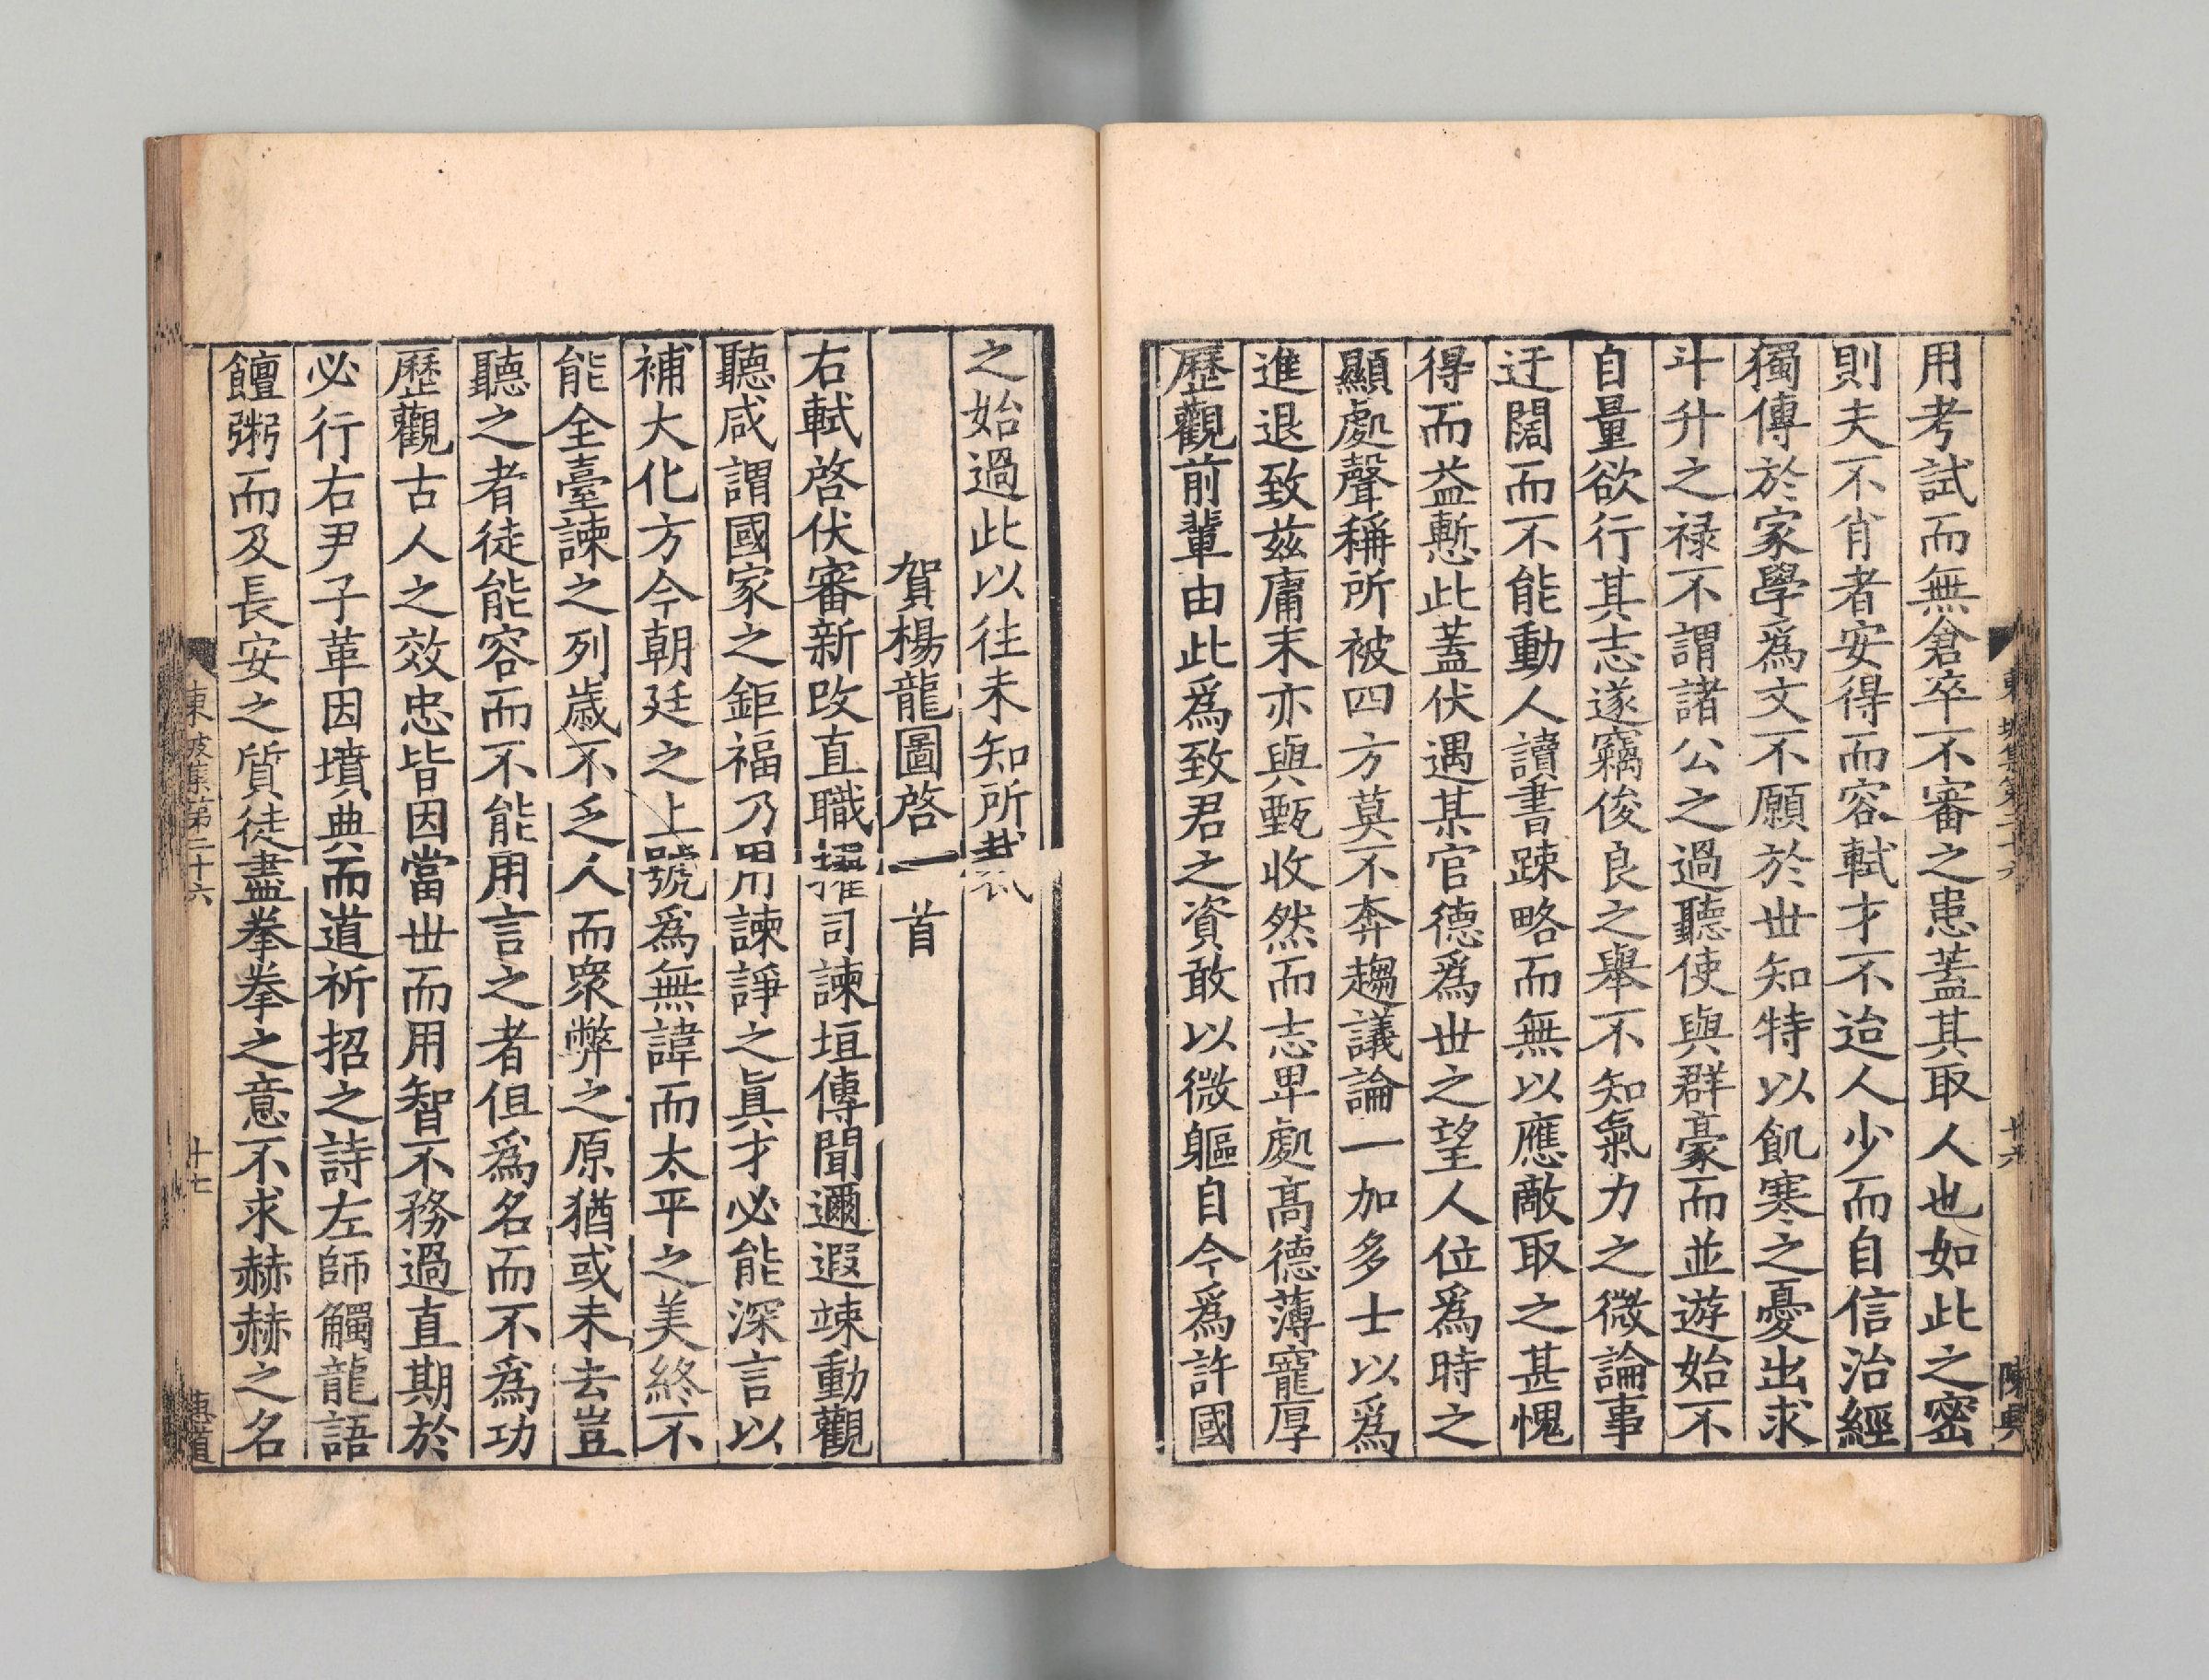 用考試而無倉卒不審之患蓋其取人也如此之密
則夫不肖者安得而容軾才不迨人少而自信治經
獨傳於家學爲文不願於世知特以飢寒之憂出求
斗升之禄不謂諸公之過聽使與群豪而並遊始不
自量欲行其志遂竊俊良之舉不知氣力之微論事
迂闊而不能動人讀書踈略而無以應敵取之甚愧
得而益慙此蓋伏遇某官德爲世之望人位爲時之
顯處聲稱所被四方莫不奔趨議論一加多士以爲
進退致兹庸末亦與甄收然而志卑處高德薄寵厚
歷觀前輩由此爲致君之資敢以微軀自今爲許國
東坡集第二十六 十六 陳興
之始過此以往未知所裁
賀楊龍圖啓一首
右軾啓伏審新改直職擢司諫垣傳聞邇遐竦動觀
聽咸謂國家之鉅福乃用諫諍之眞才必能深言以
補大化方今朝廷之上號爲無諱而太平之美終不
能全臺諫之列歲不乏人而衆弊之原猶或未去豈
聽之者徒能容而不能用言之者但爲名而不爲功
歷觀古人之效忠皆因當世而用智不務過直期於
必行右尹子革因墳典而道祈招之詩左師觸龍語
饘粥而及長安之質徒盡拳拳之意不求赫赫之名
東坡集第二十六 十七